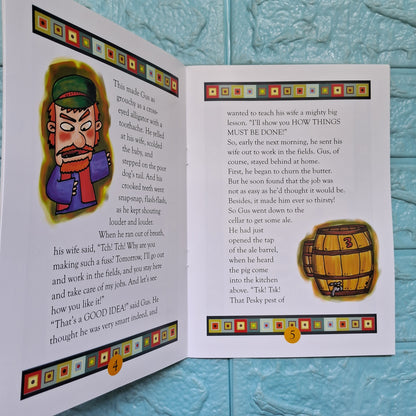 This made Gus as
grouchy as a cross-
eyed alligator with a
toothache. He yelled
at his wife, scolded
the baby, and
stepped on the poor
dog's tail. And his
crooked teeth went
snap-snap, flash-flash,
as he kept shouting
louder and louder.
When he ran out of breath,
his wife said, "Tch! Tch! Why are you
making such a fuss? Tomorrow, I'll go out
and work in the fields, and you stay here
and take care of my jobs. And let's see
how you like it!"
"That's a GOOD IDEA!" said Gus. He
thought he was very smart indeed, and
4
wanted to teach his wife a mighty big
lesson. "I'll show you HOW THINGS
MUST BE DONE!"
So, early the next morning, he sent his
wife out to work in the fields. Gus, of
course, stayed behind at home.
First, he began to churn the butter.
But he soon found that the job was
not as easy as he'd thought it would be.
Besides, it made him ever so thirsty!
So Gus went down to the
cellar to get some ale.
He had just
opened the tap
of the ale barrel,
when he heard
the pig come
into the kitchen
above. "Tsk! Tsk!
That Pesky pest of
3
5